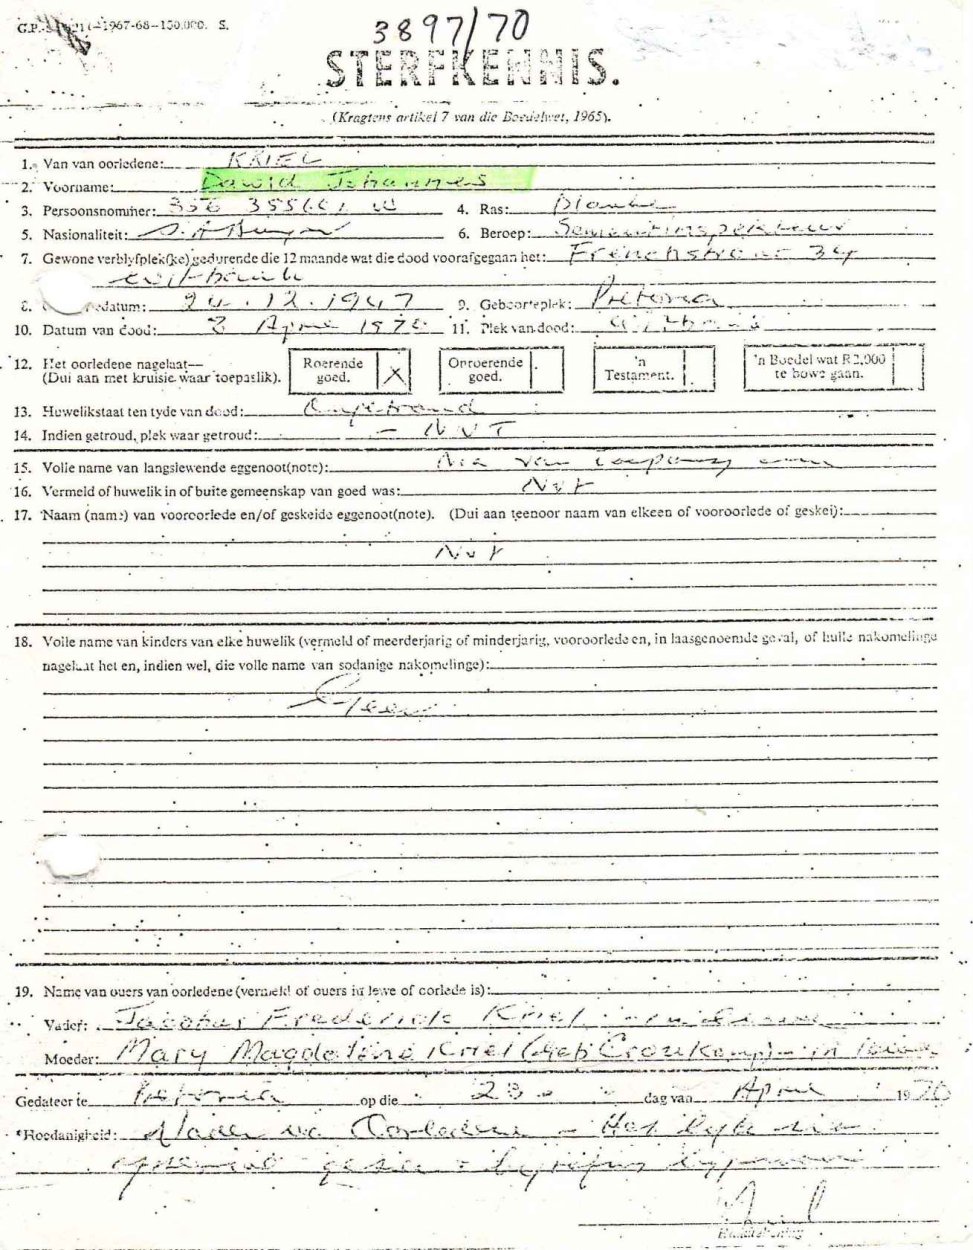 3897/70
STERFKENNIS.
(Kragtens artikel 7 van die Boedelwet, 1965).
1. Van van oorledene: KRIEL
2. Voorname: Dawid Johannes
3. Persoonsnommer: 4. Ras: Blanke
5. Nasionaliteit: S.A. Burger 6. Beroep:
7. Gewone verblyfplek(ke) gedurende die 12 maande wat die dood voorafgegaan het: 34
Witbank
8. 24.12.1947 9. Geboorteplek: Pretoria
10. Datum van dood: April 1970 11. Plek van dood: Witbank
12. Het oorledene nagelaat—
(Dui aan met kruisie waar toepaslik).
Roerende
goed. X
Onroerende
goed.
'n
Testament.
'n Boedel wat R2,000
te bowe gaan.
13. Huwelikstaat ten tyde van dood: Ongetroud
14. Indien getroud, plek waar getroud: - NVT
15. Volle name van langslewende eggenoot(note): Nie van toepassing
16. Vermeld of huwelik in of buite gemeenskap van goed was: NVT
17. Naam (name) van vooroorlede en/of geskeide eggenoot(note). (Dui aan teenoor naam van elkeen of vooroorlede of geskei):
NVT
18. Volle name van kinders van elke huwelik (vermeld of meerderjarig of minderjarig, vooroorlede en, in laasgenoemde geval, of hulle nakomelinge
nagelaat het en, indien wel, die volle name van sodanige nakomelinge):
Geen
19. Name van ouers van oorledene (vermeld of ouers in lewe of oorlede is):
Vader: Jacobus Frederick Kriel
Moeder: Mary Magdalene Kriel (geb Cronkamp) - in lewe
Gedateer te Pretoria op die 23 dag van April 1970
*Hoedanigheid: Vader van Oorledene - Het lyk